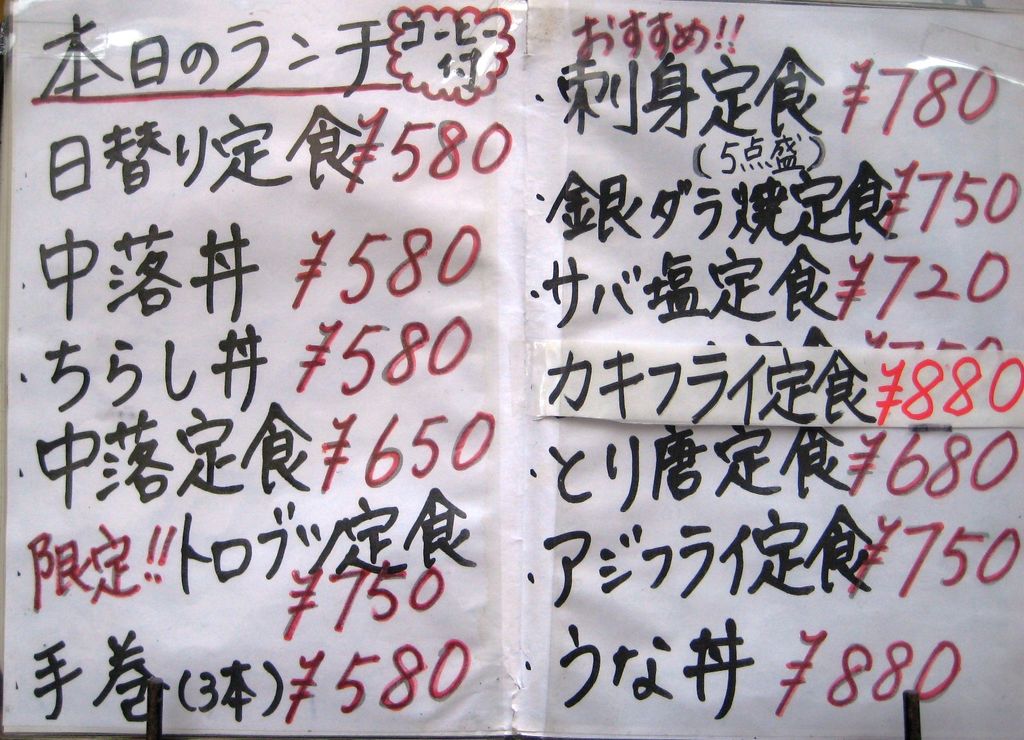 本日のランチ コーヒー付
日替り定食 ¥580
中落丼 ¥580
・ちらし丼 ¥580
・中落定食 ¥650
・限定!! トロブツ定食
¥750
手巻(3本) ¥580
おすすめ!!
・刺身定食 ¥780
(5点盛)
・銀ダラ焼定食 ¥750
・サバ塩定食 ¥720
カキフライ定食 ¥880
・とり唐定食 ¥680
・アジフライ定食 ¥750
・うな丼 ¥880